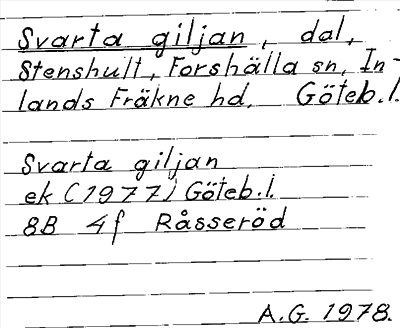 Svarta giljan, dal,
Stenshult, Forshälla sn, In-
lands Fräkne hd, Göteb.l.
Svarta giljan
ek (1977) Göteb.l.
8B 4f Råsseröd
A.G. 1978.